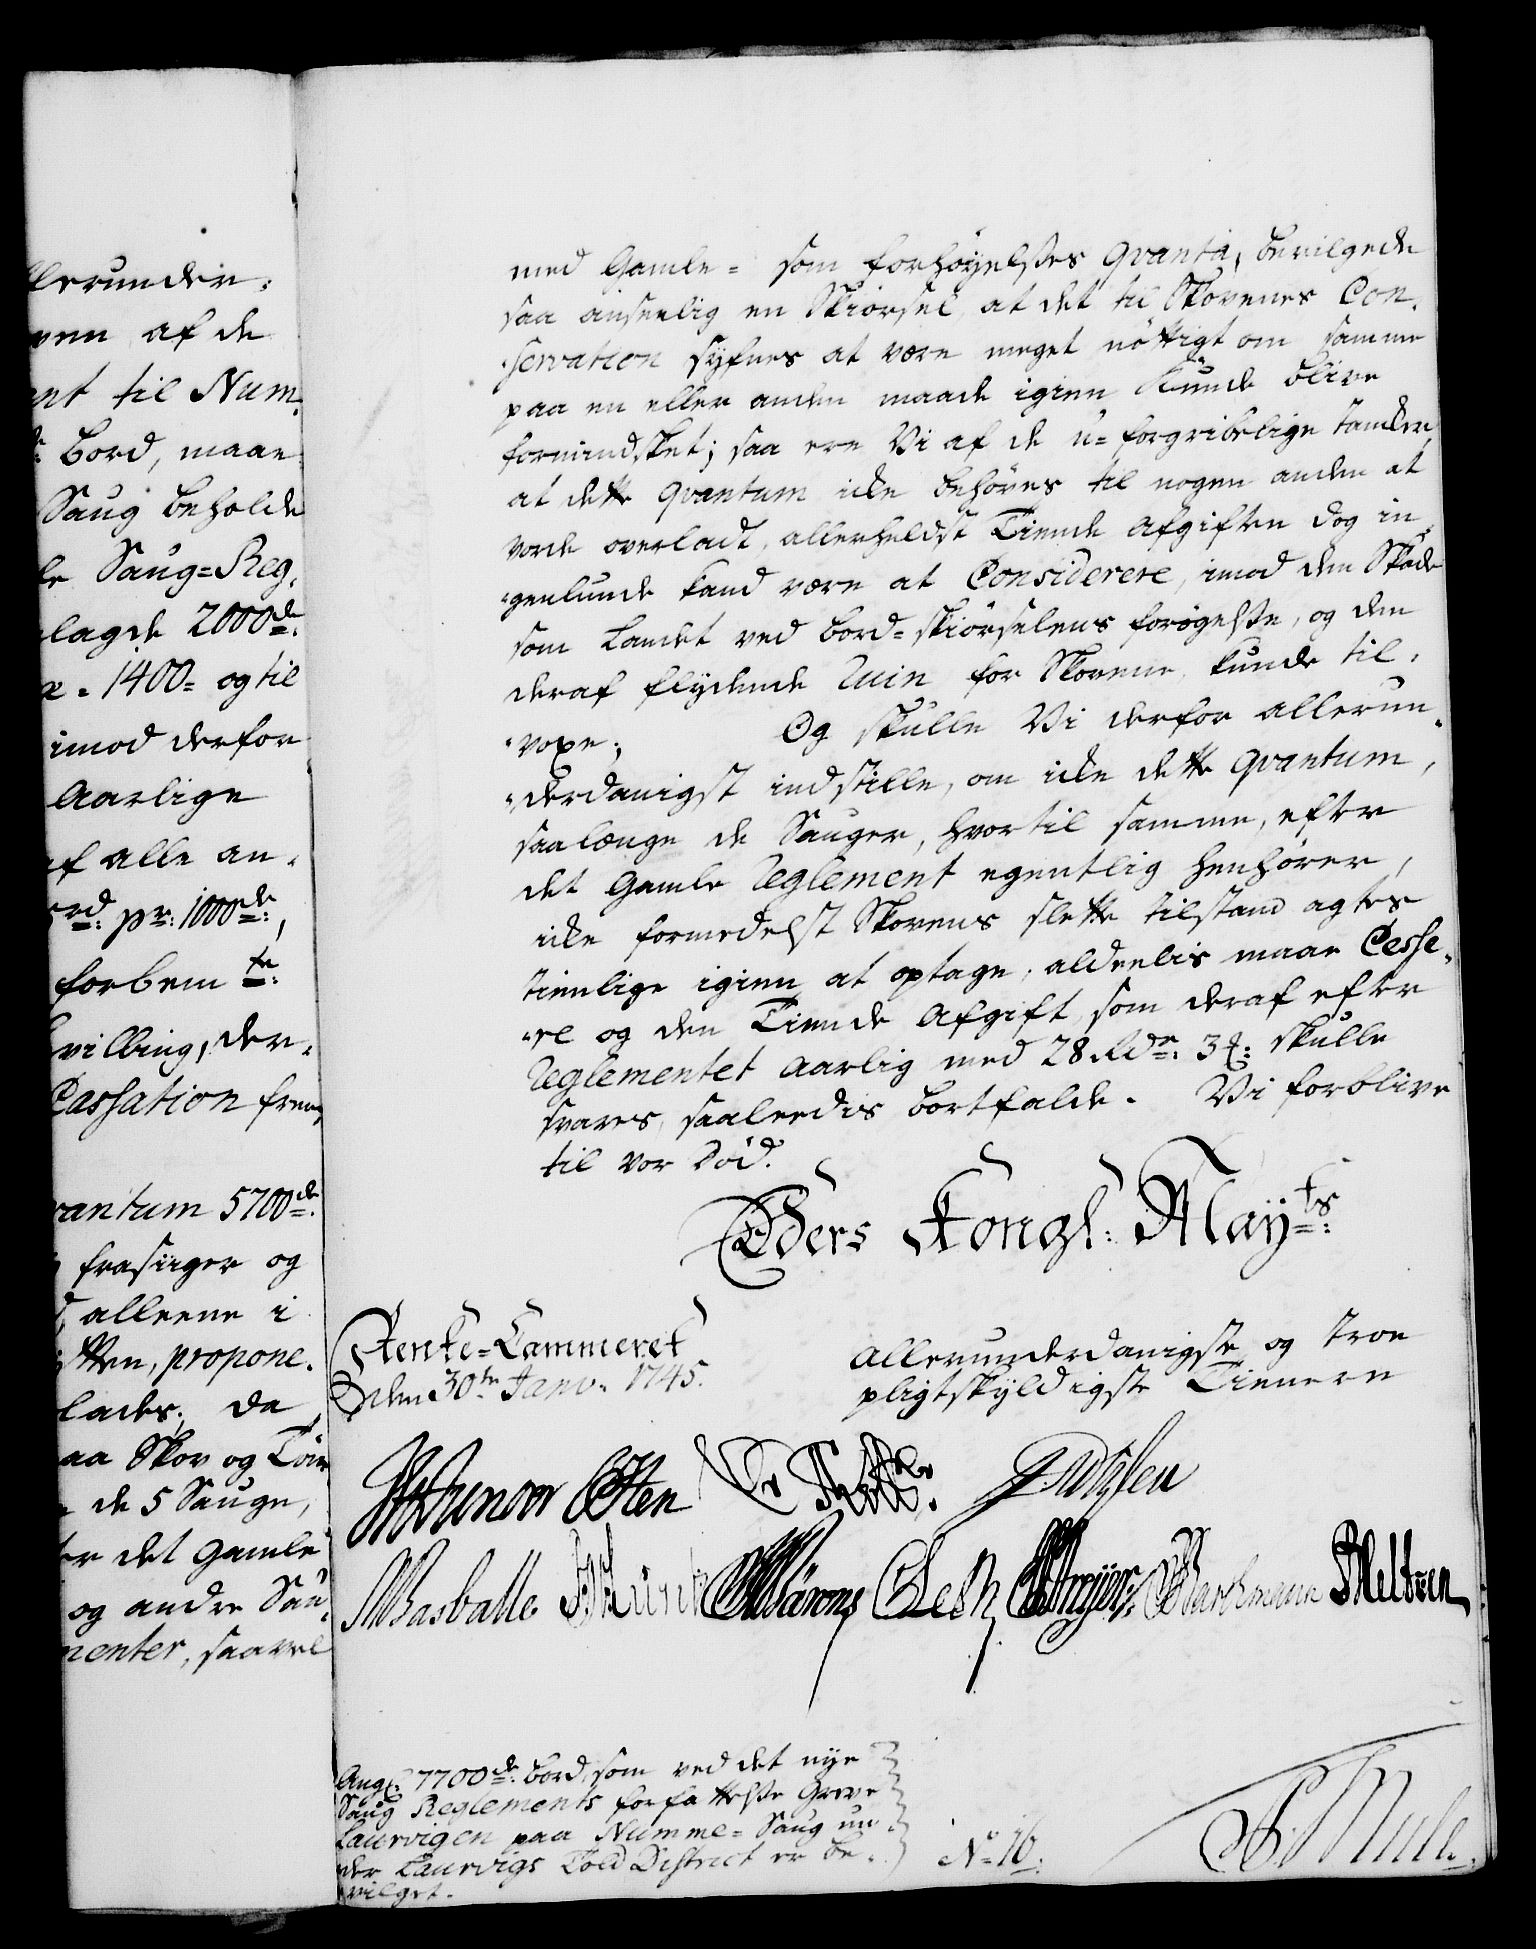 llerunder-
ven af de
nt til Num-
de: Bord, maae
Saug beholde
le Saug=Reg-
lagde 2000de:
1400= og til
imod derfor
Aarlige
af alle an-
pr: 1000de:,
forbemte:
villing, der-
Cassation frem-
vantum 5700de:
frasiiger og
alleene i
tten, propone-
lades; da
aa Skov og Tøm
de 5 Sauge,
er det Gamle
og andre Sau-
menter, saavel
med Gamle= som forhøyelsses Qvanta, bevilgede
saa anseelig en Skiørsel, at det til Skovenes Con-
-servation syfnes at være meget nøttigt om samme
paa en eller anden maade igien kunde blive
formindsket; saa ere Vi af de u=forgribelige tanker,
at dette Qvantum icke behøves til nogen anden at
vorde overladt, allerheldst Tiende Afgiften dog in-
-genlunde kand være at Considerere, imod den Skade
som Landet ved Bord=skiørselens forøgelsse, og den
deraf flydende Ruin for Skovene, kunde til-
-voxe; Og skulle Vi derfor allerun-
-derdanigst indstille, om icke dette Qvantum,
saalænge de Sauger, hvortil samme, efter
det Gamle Reglement egentlig henhører,
icke formedelst Skovens slette tilstand agtes
tienlige igien at optage, aldeelis maae Cesse-
-re og den Tiende Afgift, som deraf efter
Reglementet Aarlig med 28 Rdr: 3 ß: skulle
svares, saaleedis bortfalde. Vi forblive
til vor Død.
Eders Kongl: Mayts:
Rente=Cammeret
den 30te Janv: 1745.
Allerunderdanigste og troe
pligtskyldigste Tienere
Masballe Bartzmann Meltzen
Angl: 7700de: Bord, som ved det nye
Saug Reglements forfattelsse Greve
Laurvigen paa Numme=Saug un-
der Laurvigs Told District er be-
vilget.
No 16: